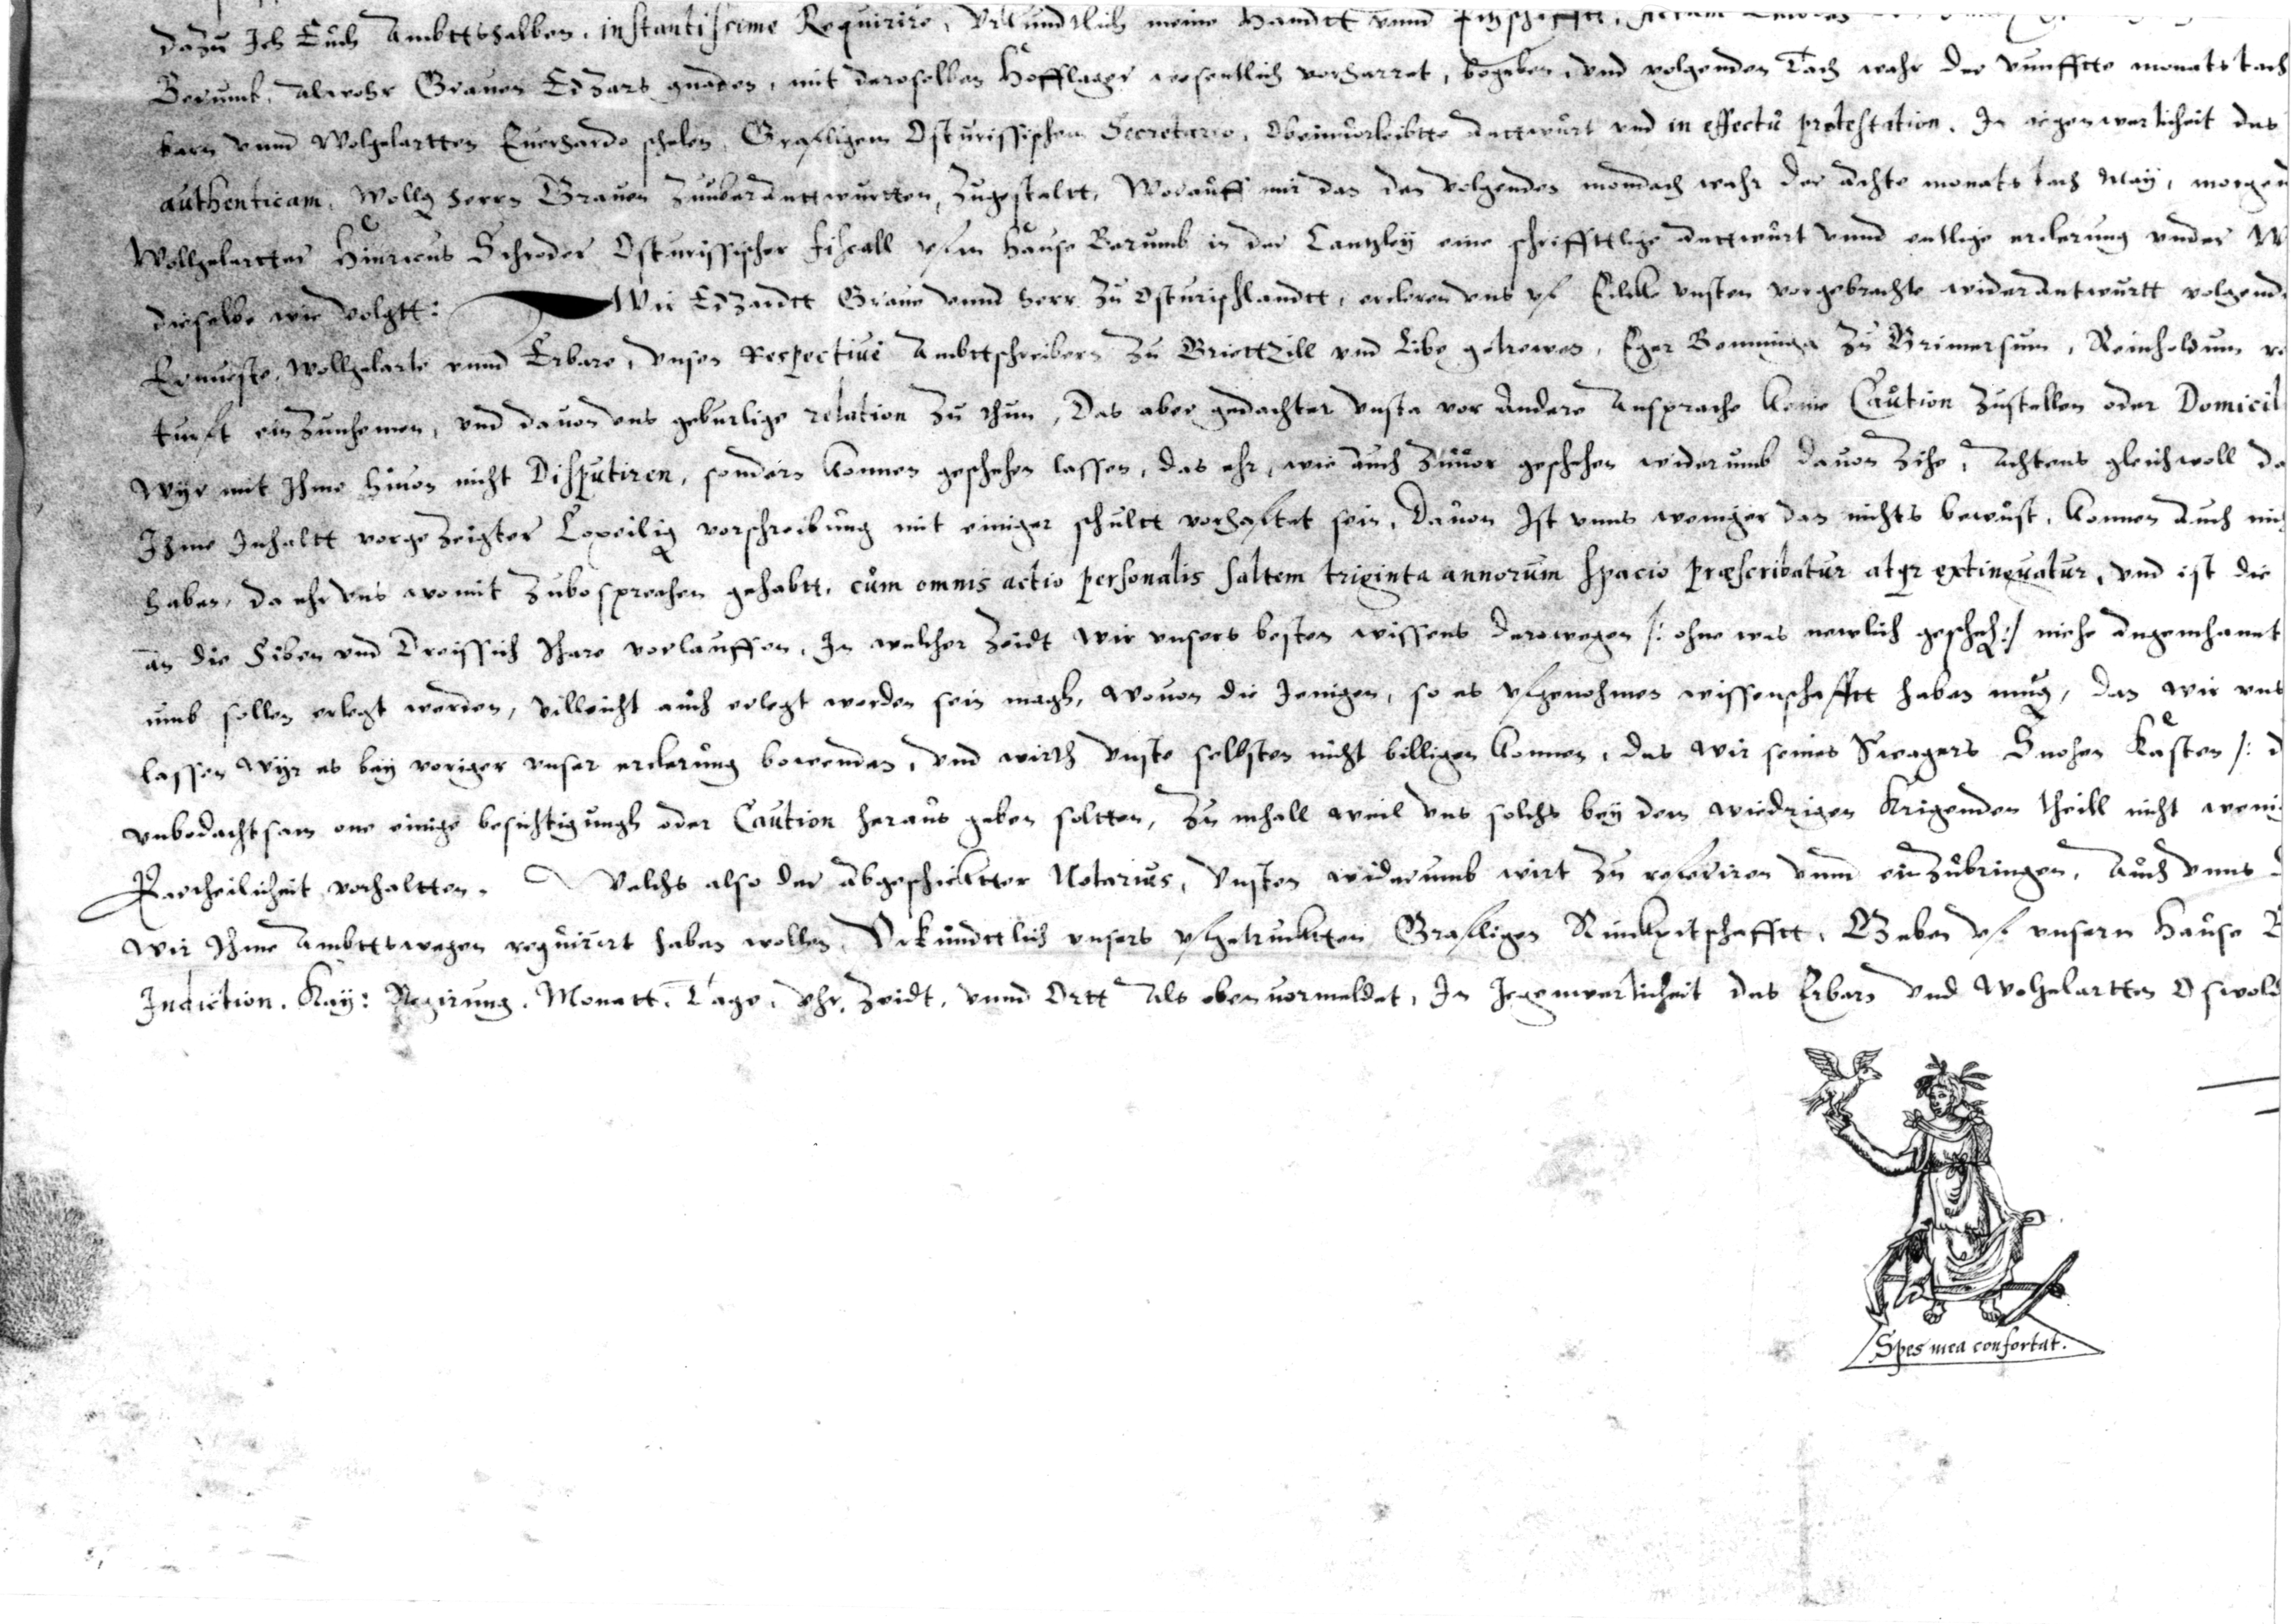 dazu Ich Euch Ambttshalben, instantissime Requirire, Urkundtlich meine Handtt unnd
Berumb, alwohr Graven Edzars gnaden, mit deroselben Hofflager wesentlich vorharret, begeben, und volgenden Tach wahr der vunffte monats tach
unnd Wolgelartten Everhardo schelen, Grafligem Osturissischem Secretario, Obeinvorleibtte anttwurt und in effectu protestation. In iegenwarticheit des
authenticam, Wollg Herrn Graven zuuberanttwurtten, zugestaltt, Worauff mir dan den volgenden mondach wahr der achte monats tach May, morgen
Wollgelartter Hinricus Schroder Osturissischer fiscall ufm Hause Berumb in der Cantzley eine schrifftlige anttwurt unnd entlige erclerung under
dieselbe wie volgtt: Wir Edzardtt Grave unnd Herr zu Osturischlandtt, ercleren uns uf Eilke unsten vorgebrachte widerantwurtt volgend
Ernveste, Wollgelarte unnd Erbare, unsen Respective Ambttschreibern zu Griettzill und Libe getrewen, Eger Benninga zu Grimersum, Reinholdum
turft einzunehmen, und davon uns geburlige relation zu thun, Das aber gedachter unsta vor andere Ansprache keine Caution zustellen oder Domicil
Wyr mit Ihme hivon nicht Disputiren, sondern konnen geschehen lassen, das ehr, wie auch zuvor geschehen widerumb davon zihe, Achtens gleichwoll da
Ihme Inhaltt vorgezeigter Copeilig vorschreibung mit einiger schultt vorhaftet sein, Davon Ist unns weniger dan nichts bewust, konnen auch
haben, da ehr uns womit zubesprechen gehabtt, cum omnis actio personalis saltem triginta annorum spacio præscribatur atqz extinguatur, und ist die
an die Siben und Dreissich Ihare vorlauffen, In welcher zeidt wir unsers besten wissens derowegen /: ohne was newlich gescheh :/ niehe angemhanet
umb sollen erlegt werden, villeicht auch erlegt worden sein magh, wovon die Jenigen, so es ufgenohmen wissenschafft haben mug, dan wir uns
lassen Wyr es bey voriger unser erclerung bewenden, und wirth unste selbsten nicht billigen konnen, das wir seines Swagers Snohen Kasten /: d
unbedachtsam one einige besichtigungh oder Caution heraus geben soltten, Zu mhall weil uns solchs bey dem wiedrigen Krigenden theill nicht
Partheilicheit vorhaltten. Welchs also der abgeschicktter Notarius, Unsten widerumb wirt zu referiren unnd einzubringen, Auch unns
wir Ihme Ambttswegen requirirt haben wollen, Urkundttlich unsers ufgetrucktten Grafligen Rinckpitschafftt, Geben uf unserm Hause B
Indiction. Kay: Regirung. Monatt. Tage. Uhr. Zeidt. unnd Ortt Als oben vormeldet, In Jegenwerticheit des Erbarn und Wolgelartten Oswold
Spes mea confortat.